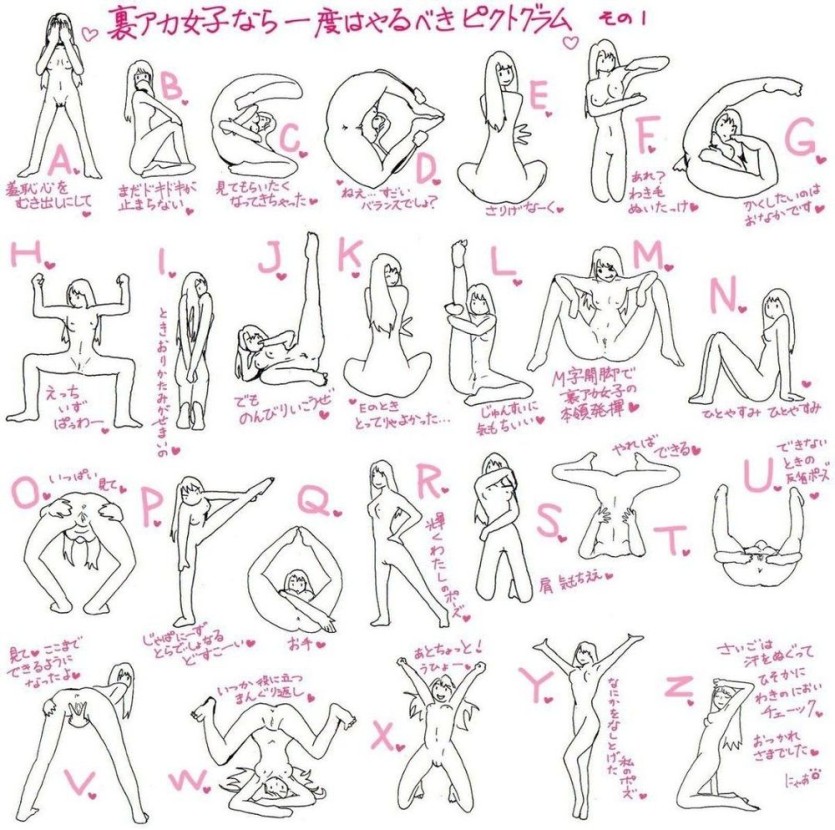 裏アカ女子なら一度はやるべきピクトグラム その1
A
羞恥心を
むき出しにして
B
まだドキドキが
止まらない
C
見てもらいたく
なってきちゃった
D
ねえ…すごい
バランスでしょ?
E
さりげなーく
F
あれ?
わき毛
ぬいたっけ
G
かくしたいのは
おなかです
H
えっち
いず
ぱぅわー
I
ときおりかたみがせまいの
J
でも
のんびりいこうぜ
K
Eのとき
とってりゃよかった…
L
じゅんすいに
気もちいい
M
M字開脚で
裏アカ女子の
本領発揮
N
ひとやすみ ひとやすみ
O
いっぱい 見て
P
じゃぱにーず
とらでぃしょなる
どすこーい
Q
お手
R
輝くわたしのポーズ
S
肩 気もちええ
T
やれば
できる
U
できない
ときの
反省ポーズ
V
見て ここまで
できるように
なったよ
W
いつか役に立つ
まんぐり返し
X
あとちょっと!
うひょー
Y
なにかをなしとげた
私のポーズ
Z
さいごは
汗をぬぐって
ひそかに
わきのにおい
チェーック
おつかれ
さまでした
にゃお